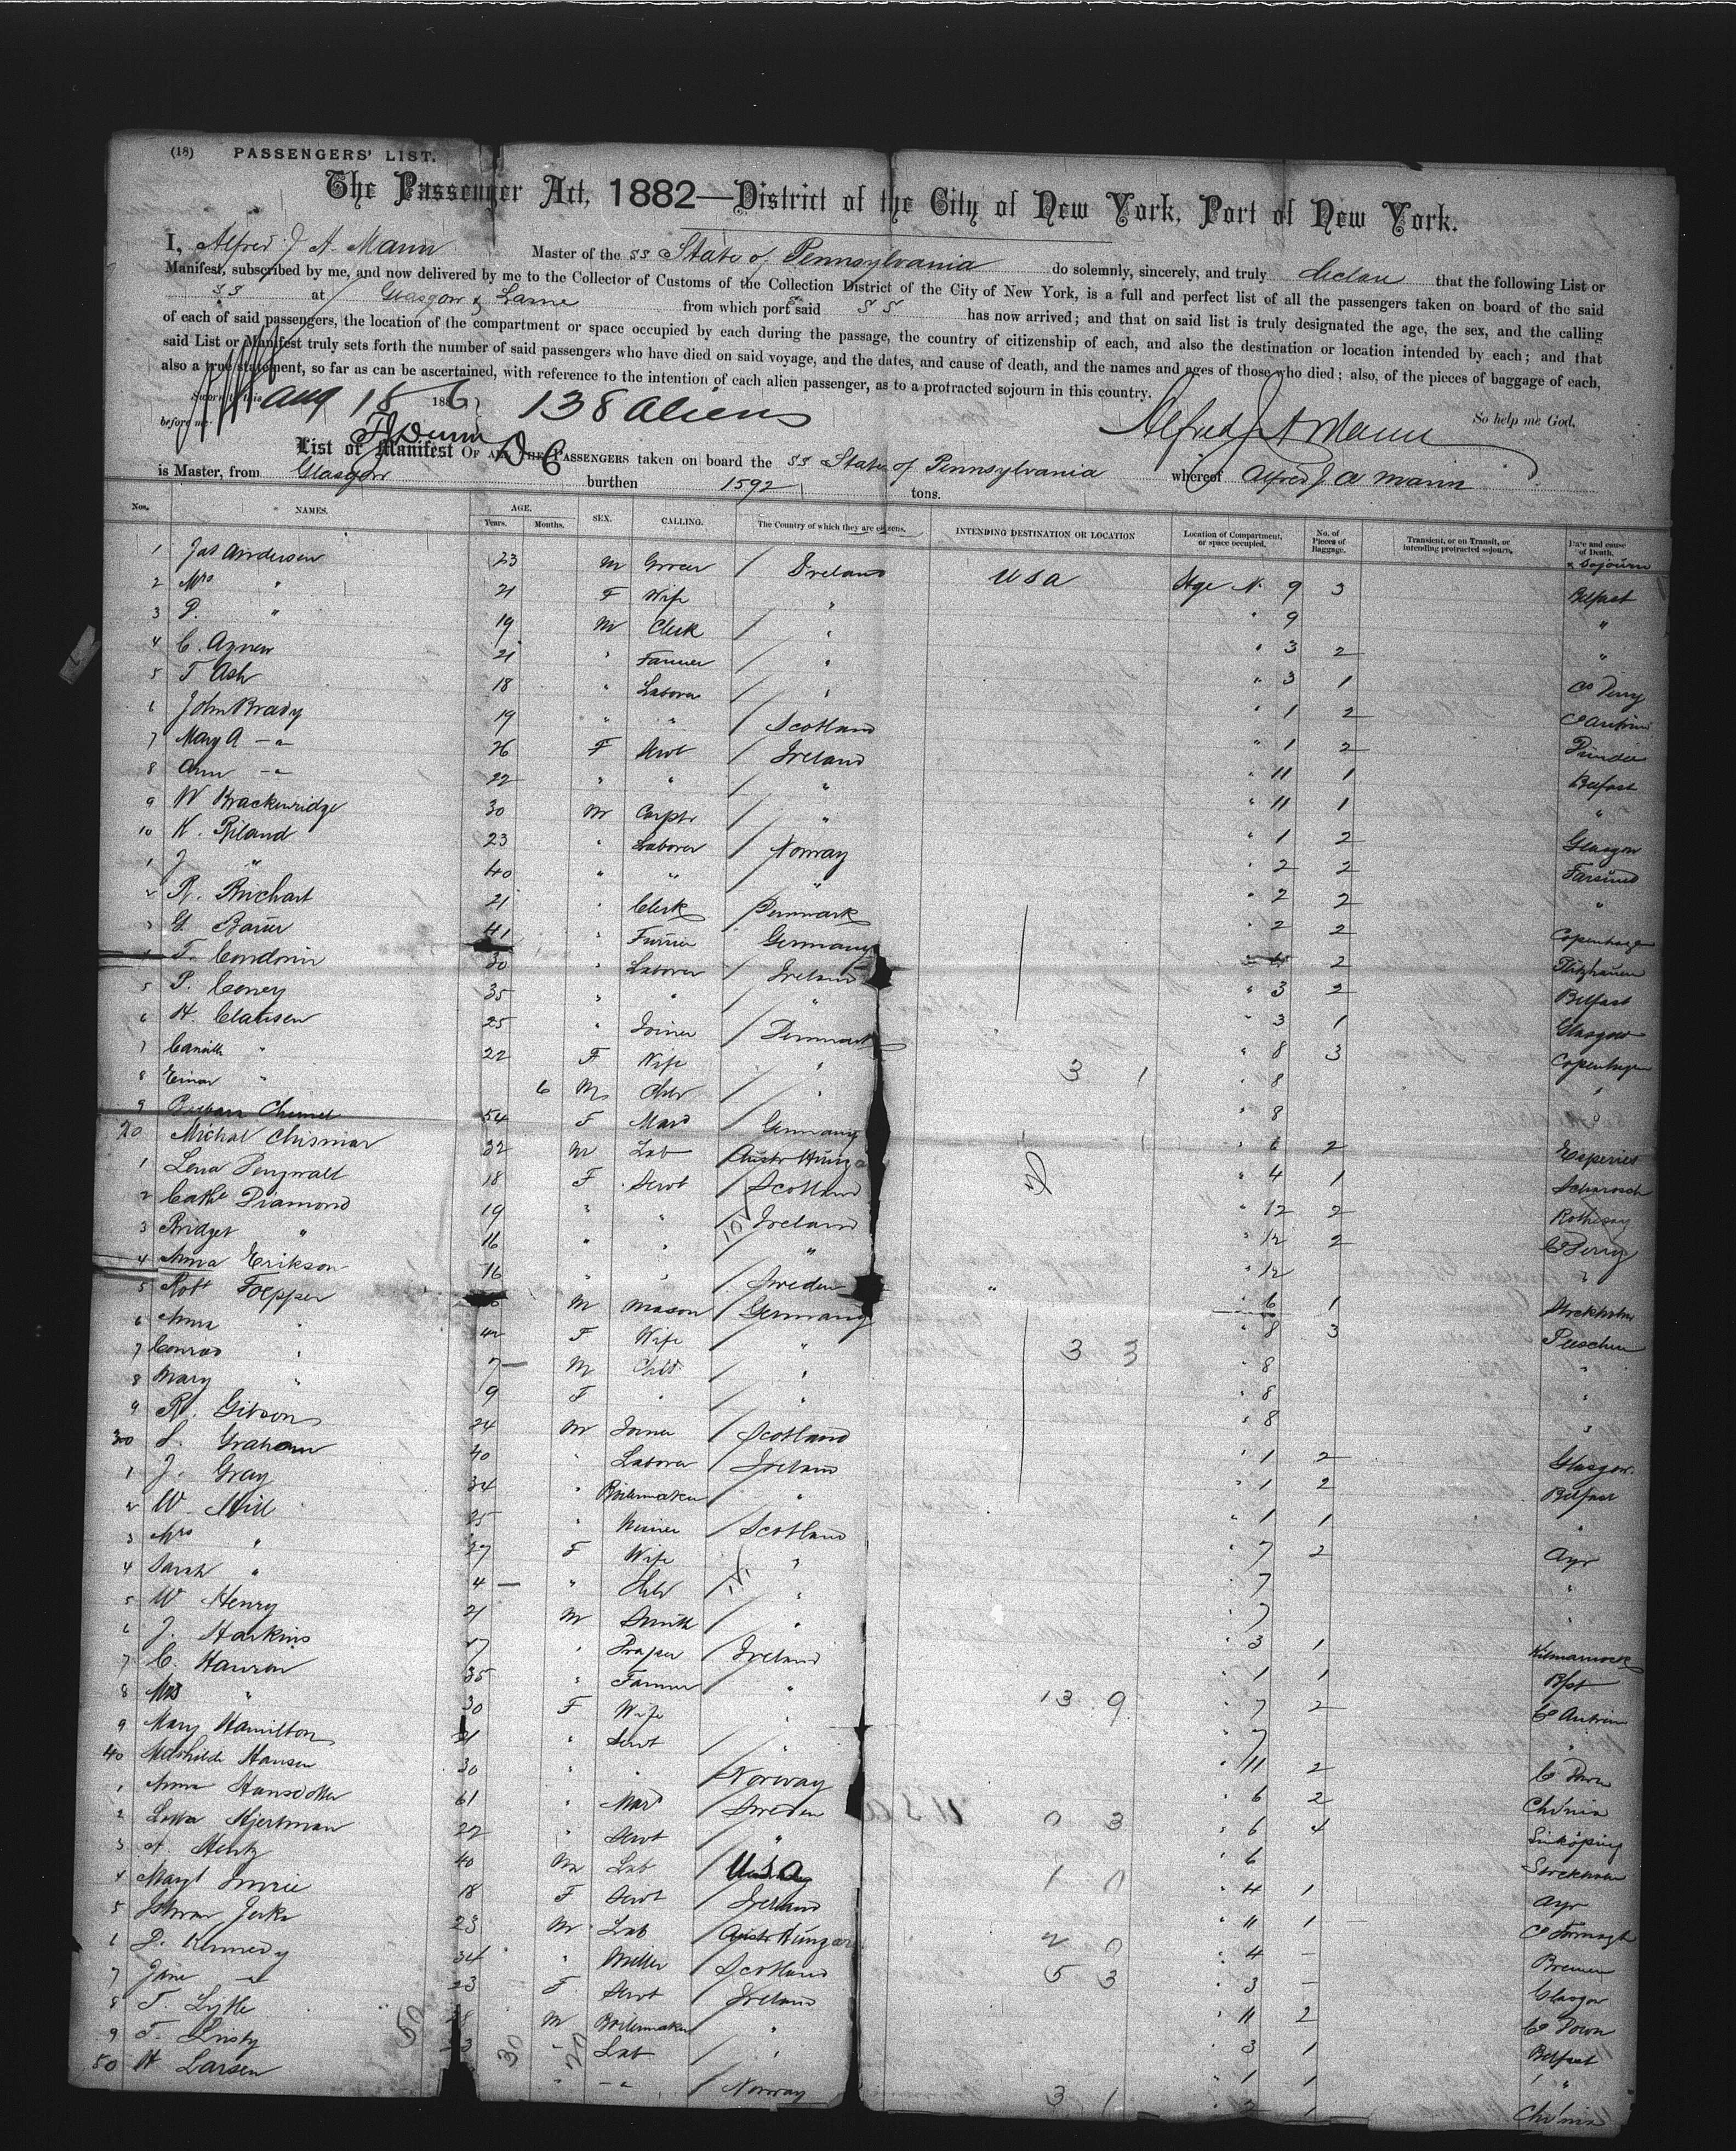 (18) PASSENGERS' LIST.
The Passenger Act, 1882—District of the City of New York, Port of New York.
I, Alfred J A Mann Master of the SS State of Pennsylvania do solemnly, sincerely, and truly declare that the following List or
Manifest, subscribed by me, and now delivered by me to the Collector of Customs of the Collection District of the City of New York, is a full and perfect list of all the passengers taken on board of the said
SS at Glasgow & Larne from which port said SS has now arrived; and that on said list is truly designated the age, the sex, and the calling
of each of said passengers, the location of the compartment or space occupied by each during the passage, the country of citizenship of each, and also the destination or location intended by each; and that
said List or Manifest truly sets forth the number of said passengers who have died on said voyage, and the dates, and cause of death, and the names and ages of those who died; also, of the pieces of baggage of each,
also a true statement, so far as can be ascertained, with reference to the intention of each alien passenger, as to a protracted sojourn in this country.
Sworn to this Aug 18 1886 138 aliens Alfred J A Mann So help me God.
before me
List or Manifest OF ALL THE PASSENGERS taken on board the SS State of Pennsylvania whereof Alfred J A Mann
is Master, from Glasgow burthen 1592 tons.
Nos. NAMES. AGE. Years. Months. SEX. CALLING. The Country of which they are citizens. INTENDING DESTINATION OR LOCATION Location of Compartment, or space occupied. No. of Pieces of Baggage. Transient, or on Transit, or intending protracted sojourn. Date and cause of Death. & Sojourn
1 Jas Anderson 23 M Grocer Ireland USA Stge N. 9 3 Belfast
2 Mrs " 21 F Wife " " 9 "
3 P. " 19 M Clerk " " 3 2 "
4 C. Agnew 21 " Farmer " " 3 1 Co Derry
5 T Ash 18 " Laborer " " 1 2 Co Antrim
6 John Brady 19 " " Scotland " 1 2 Dundee
7 Mary A " 26 F Servt Ireland " 11 1 Belfast
8 Ann " 22 " " " " 11 1 "
9 W Brackenridge 30 M Carptr " " 1 2 Glasgow
10 K. Riland 23 " Laborer Norway " 2 2 Farsund
1 J " 40 " " " " 2 2 "
2 R. Brichart 21 " Clerk Denmark " 2 2 Copenhagen
3 G. Bauer 41 " Furrier Germany 2
4 T. Condorin 30 " Laborer Ireland " 3 2 Belfast
5 P. Coney 35 " " " " 3 1 Glasgow
6 H. Clausen 25 " Joiner Denmark " 8 3 Copenhagen
7 Camilla " 22 F Wife " 3 1 " 8 "
8 Einar " 6 M Chld " " 8 "
9 Barbara 54 F Mard Germany " 6 2 Eperies
20 Michal Chismar 32 M Lab Austr Hunga " 4 1
1 Lena Pengwald 18 F Servt Scotland " 12 2 Rothesay
2 Cathe Diamond 19 " " Ireland " 12 2 Co Derry
3 Bridget " 16 " " " " 12 "
4 Anna Erikson 16 " " Sweden " " 6 1 Stockholm
5 Robt Foepper M Mason Germany " 8 3
6 Anna " 42 F Wife " 3 3 " 8 "
7 Conrad " 7 M Child " " 8 "
8 Mary " 9 F " " " 8 "
9 R. Gibson 24 M Joiner Scotland " 1 2 Glasgow
30 S. Graham 40 " Laborer Ireland " 1 2 Belfast
1 J. Gray 34 " Boilermaker " " 1 1 "
2 W. Hill 25 " Miner Scotland " 7 2 Ayr
3 Mrs " 27 F Wife " " 7 "
4 Sarah " 4 " Chld " " 7 "
5 W Henry 21 M Smith " " 3 1 Kilmarnock
6 J. Harkins 17 " Draper Ireland " 1 1 Bfst
7 C. Hanson 35 " Farmer " 13 9 " 7 2 Co Antrim
8 Mrs " 30 F Wife " " 7 "
9 Mary Hamilton 21 " Servt " " 11 2 Co Down
40 Mathilde Hansen 30 " " Norway " 6 2 Ch'nia
1 Anna Hansdotter 61 " Mard Sweden 0 3 " 6 4 Linköping
2 Lotta Hjertman 22 " Servt " " 6 Stockholm
3 A. Hentz 40 M Lab USA 1 0 " 4 1 Ayr
4 Margt Imrie 18 F Servt Ireland " 11 1 Co Armagh
5 Istvan Jerka 23 M Lab Austr Hungar 2 0 " 4 – Bremen
6 J. Kennedy 34 " Miller Scotland 5 3 " 3 – Glasgow
7 Jane " 23 F Servt Ireland " 11 2 Co Down
8 T. Lytle 28 M Boilermaker " " 3 1 Belfast
9 T. Lusty " Lab " " 1 1 "
50 H Larsen " " Norway 3 1 " 2 1 Ch'nia
50 30 20